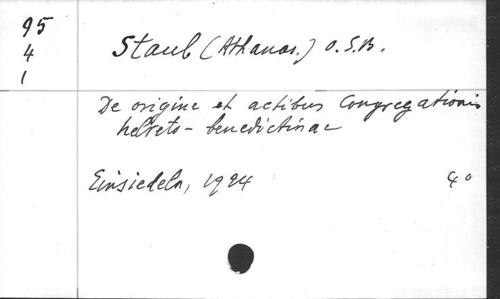 95
4
1
Staub (Athanas.) O.S.B.
De origine et actibus Congregationis
helveto-benedictinae
Einsiedeln, 1924 4°